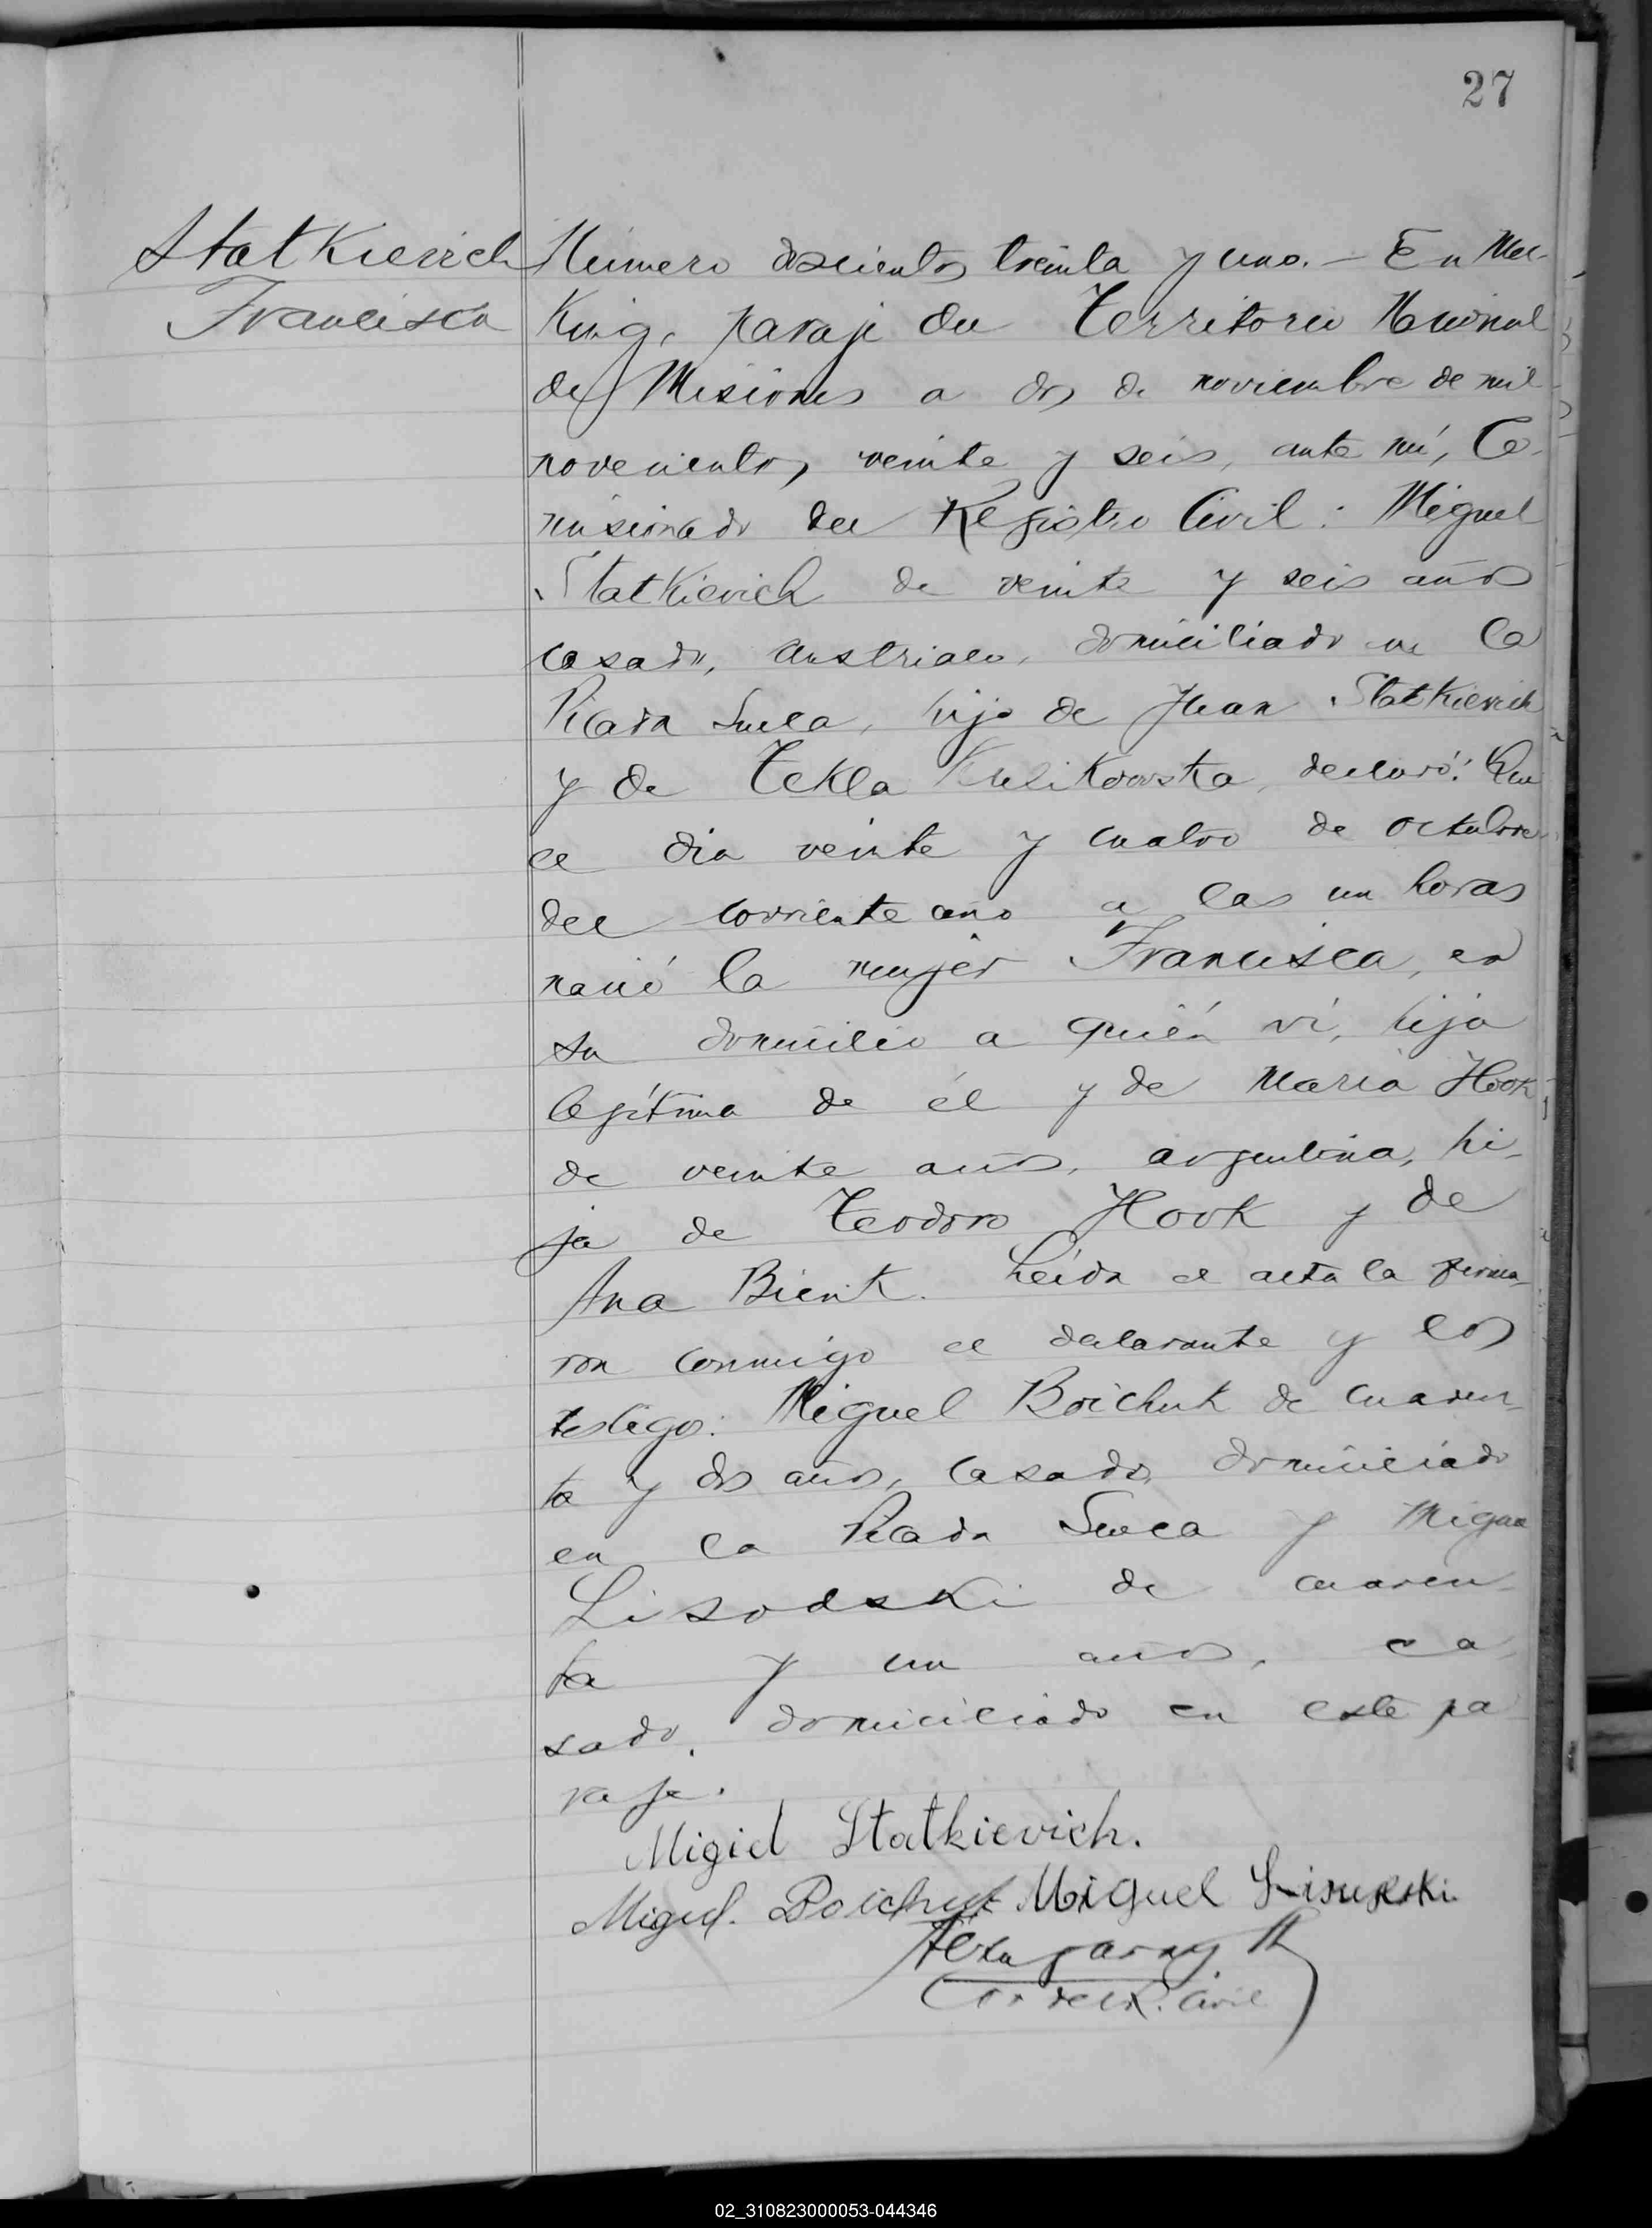 27
Statkievich
Francisca
Número doscientos treinta y uno. — En Mec-
King, paraje del Territorio Nacional
de Misiones a dos de noviembre de mil
novecientos, veinte y seis, ante mí, Co-
misionado del Registro Civil: Miguel
Statkievich de veinte y seis años
casado, austriaco, domiciliado en la
Picada Sueca, hijo de Juan Statkievich
y de Tekla Kulikowska, declaró: Que
el dia veinte y cuatro de octubre
del corriente año a las un horas
nació la mujer Francisca, en
su domicilio a quién ví, hija
legítima de él y de Maria Hook
de veinte años, argentina, hi-
ja de Teodoro Hook y de
Ana Bienk. Leída el acta la firma-
ron conmigo el declarante y los
testigos: Miguel Boichuk de cuaren-
ta y dos años, casado, domiciliado
en la Picada Sueca y Miguel
Lisodski de cuaren-
ta y un años, ca-
sado, domiciliado en este pa-
raje.
Migiel Statkievich.
Miguel. Boichuk Miguel
Civil
02_310823000053-044346